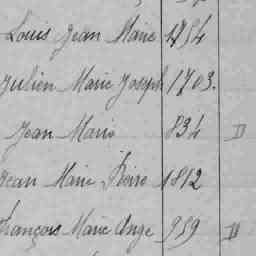 Louis Jean Marie 1754
Julien Marie Joseph 1703.
Jean Marie 834 D
Jean Marie Pierre 1812
François Marie Ange 959 D